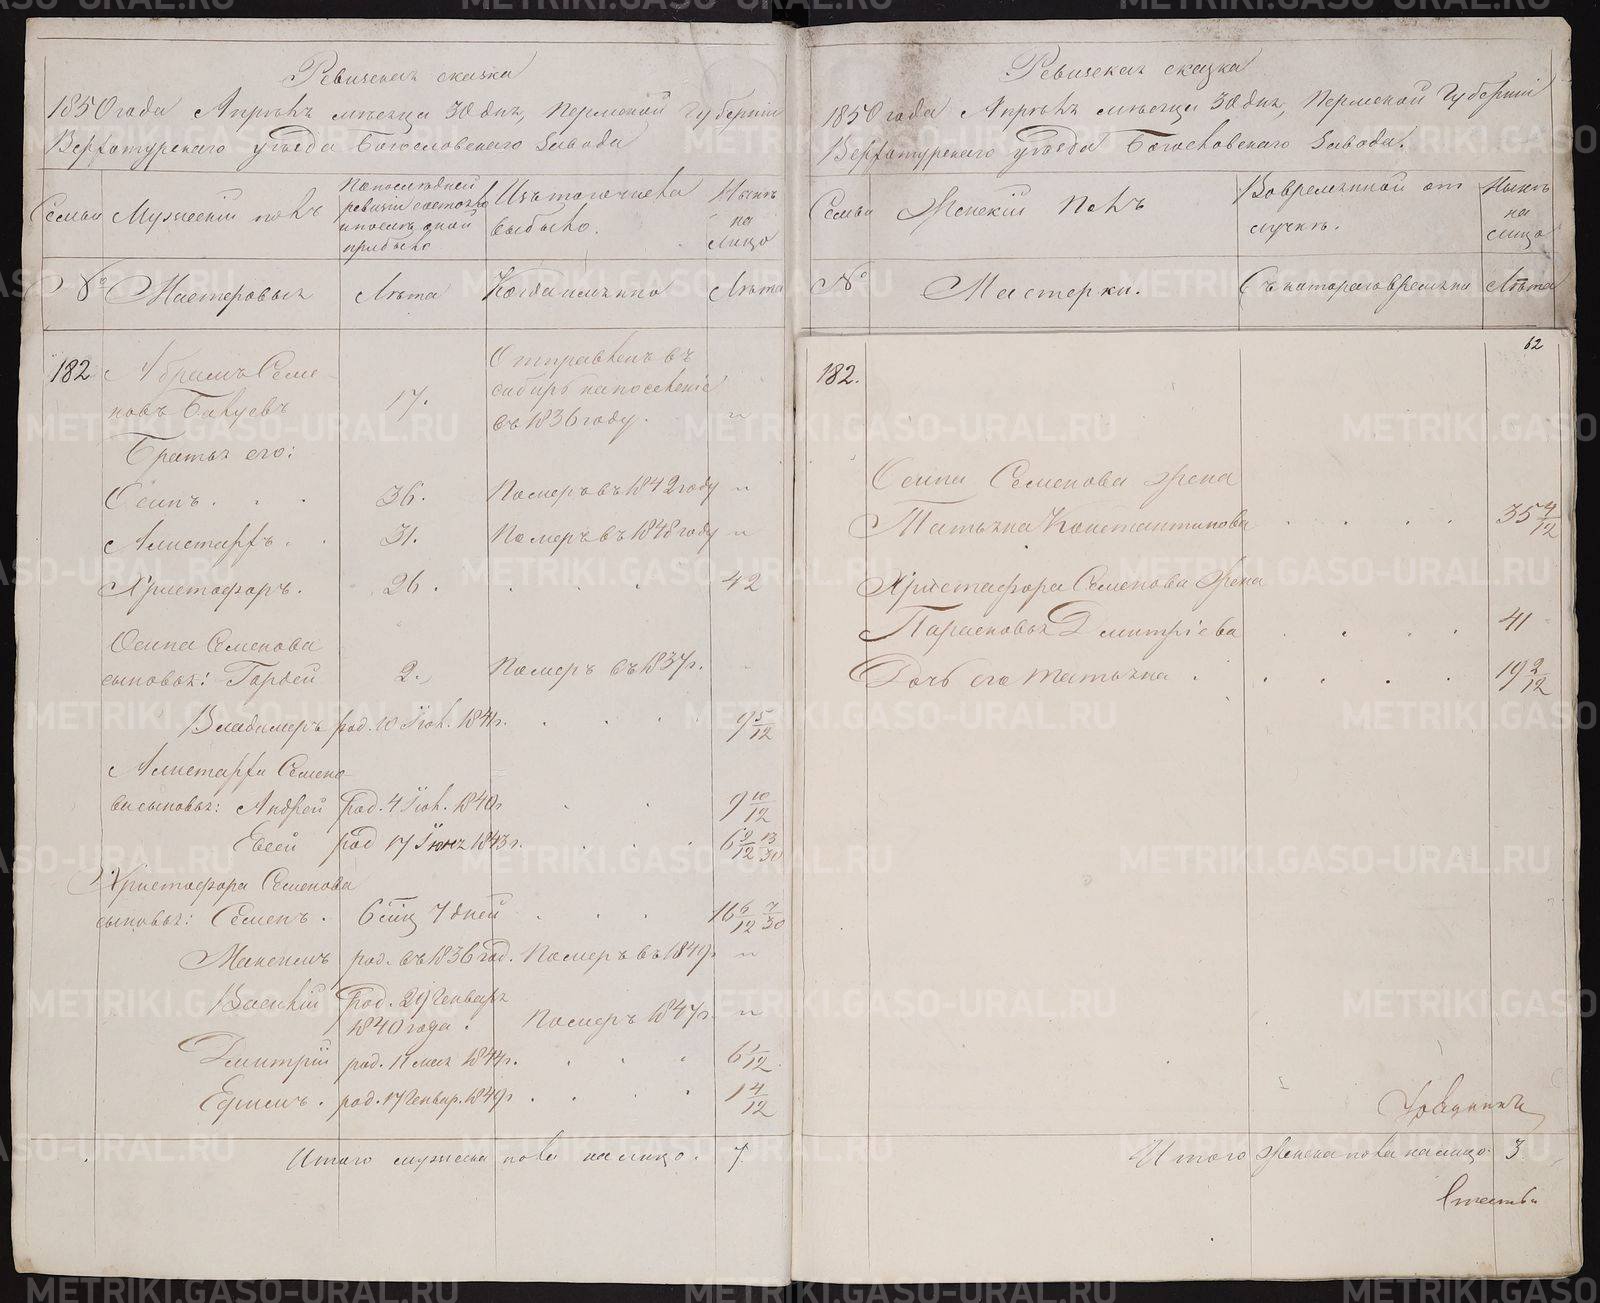 Ревизская сказка
1850 года Апрель месяца 30 дня, Пермской Губернии
Верхотурскаго уѣзда Богословскаго Завода
Семьи
Мужескій полъ
По последней
ревизіи состояло
и послѣ оной
прибыло
Изъ того числа
выбыло.
Нынѣ
на
лицо
№
Мастеровыя
Лѣта
Когда имянно
Лѣта
182
Абрамъ Семе
новъ
17.
Отправленъ въ
сибирь на поселеніе
въ 1836 году.
"
Братья его:
Осипъ. . .
36.
Померъ въ 1842 году
"
Алистархъ. .
31.
Померъ въ 1848 году
"
Христофоръ.
26.
. . .
42
Осипа Семенова
сыновья: Гордей
2.
Померъ въ 1837 г.
Владимеръ род. 10 Іюл. 1841 г. . . .
9 5/12
Алистарха Семено
ва сыновья: Андрей род. 4 Іюл. 1840 г . .
9 10/12
Евсей род 17 Іюня 1843 г. . . .
6 9/12 13/30
Христофора Семенова
сыновья: Семенъ. 6 мѣц 7 дней . . .
16 6/12 7/30
Максимъ род. въ 1836 год. Померъ въ 1849 г
"
Василій род. 29 Генваря
1840 года. Померъ 1847 г.
"
Дмитрій род. 11 мая 1844 г. . . .
6 1/12
Ефимъ. род. 17 Генвар. 1849 г . . . .
1 4/12
Итого мужеска пола на лицо. 7
Ревизская сказка
1850 года Апрель месяца 30 дня, Пермской Губернии
Верхотурскаго уѣзда Богословскаго Завода.
Семьи
Женскій Полъ
Во временной от
лучкѣ.
Нынѣ
на
лицо
№
Мастерки.
Съ котораго времѣни
Лѣта
62
182.
Осипа Семенова жена
Татьяна Константинова . . . .
35 4/12
Христофора Семенова жена
Парасковья Дмитріева . . . .
41
Дочь его Татьяна . . . . .
19 2/12
Итого женска пола на лицо. 3